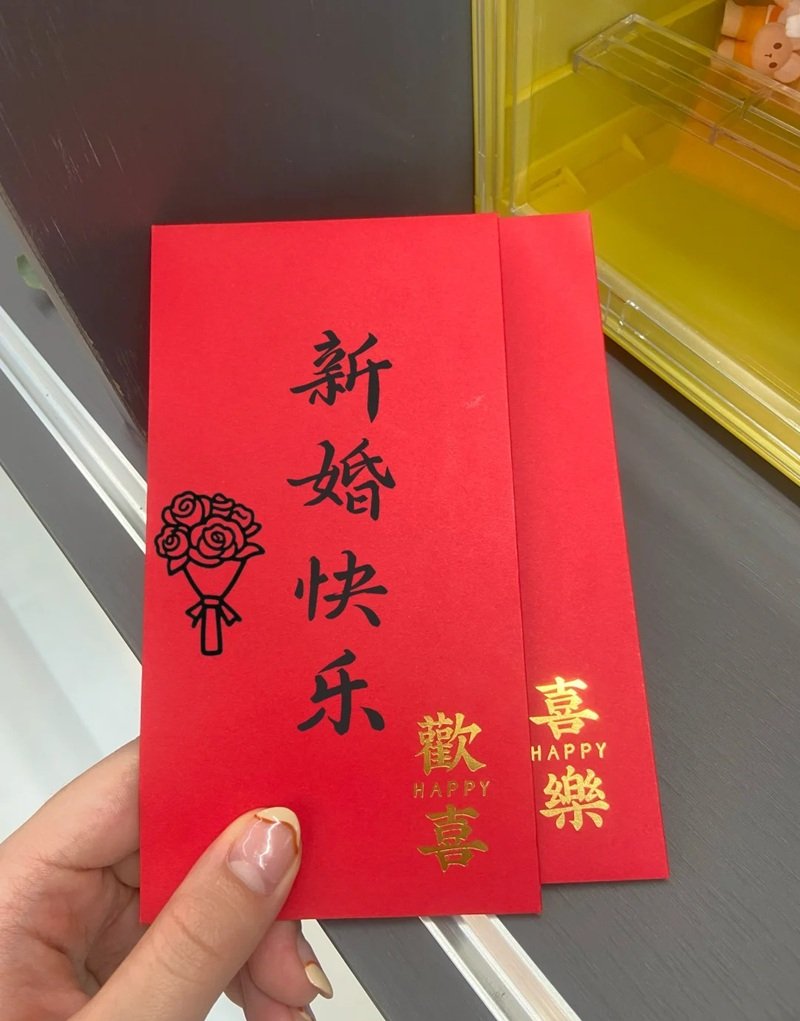 新婚快乐
歡
HAPPY
喜
喜
HAPPY
樂